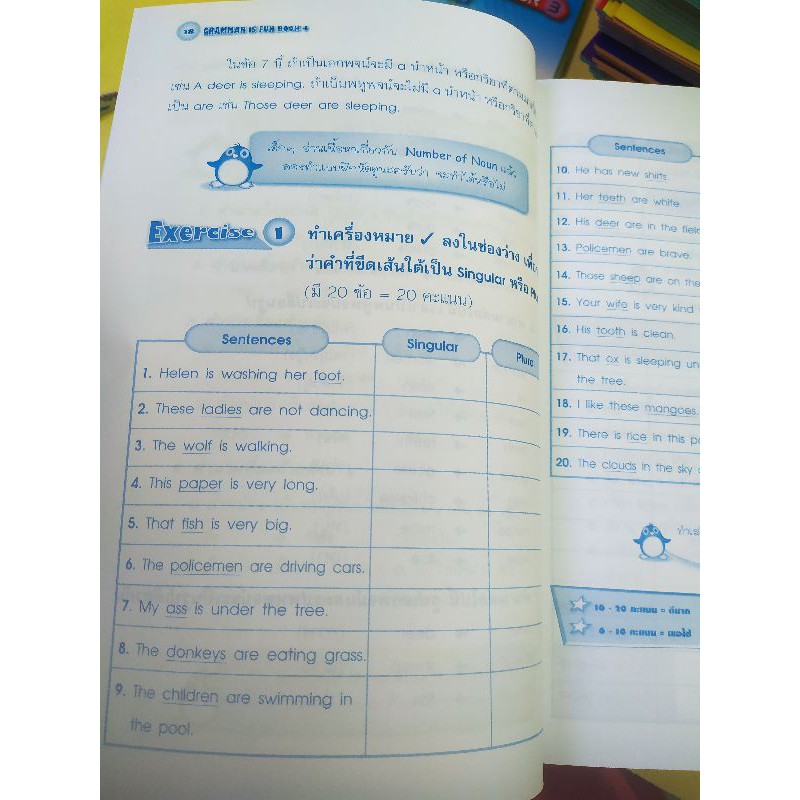 18 GRAMMAR IS FUN BOOK 4
ในข้อ 7 นี้ ถ้าเป็นเอกพจน์จะมี a นำหน้า หรือกริยาที่ตามมา
เช่น A deer is sleeping. ถ้าเป็นพหูพจน์จะไม่มี a นำหน้า หรือกริยาที่
เป็น are เช่น Those deer are sleeping.
เด็กๆ อ่านเนื้อหาเกี่ยวกับ Number of Noun แล้ว
ลองทำแบบฝึกหัดดูนะครับว่า จะทำได้หรือไม่
Exercise 1 ทำเครื่องหมาย ✓ ลงในช่องว่าง
ว่าคำที่ขีดเส้นใต้เป็น Singular หรือ
(มี 20 ข้อ = 20 คะแนน)
Sentences Singular Plura
1. Helen is washing her foot.
2. These ladies are not dancing.
3. The wolf is walking.
4. This paper is very long.
5. That fish is very big.
6. The policemen are driving cars.
7. My ass is under the tree.
8. The donkeys are eating grass.
9. The children are swimming in
the pool.
Sentences
10. He has new shirts.
11. Her teeth are white.
12. His deer are in the field
13. Policemen are brave.
14. Those sheep are on the
15. Your wife is very kind
16. His tooth is clean.
17. That ox is sleeping un
the tree.
18. I like these mangoes.
19. There is rice in this
20. The clouds in the sky
16 - 20 คะแนน = ดีมาก